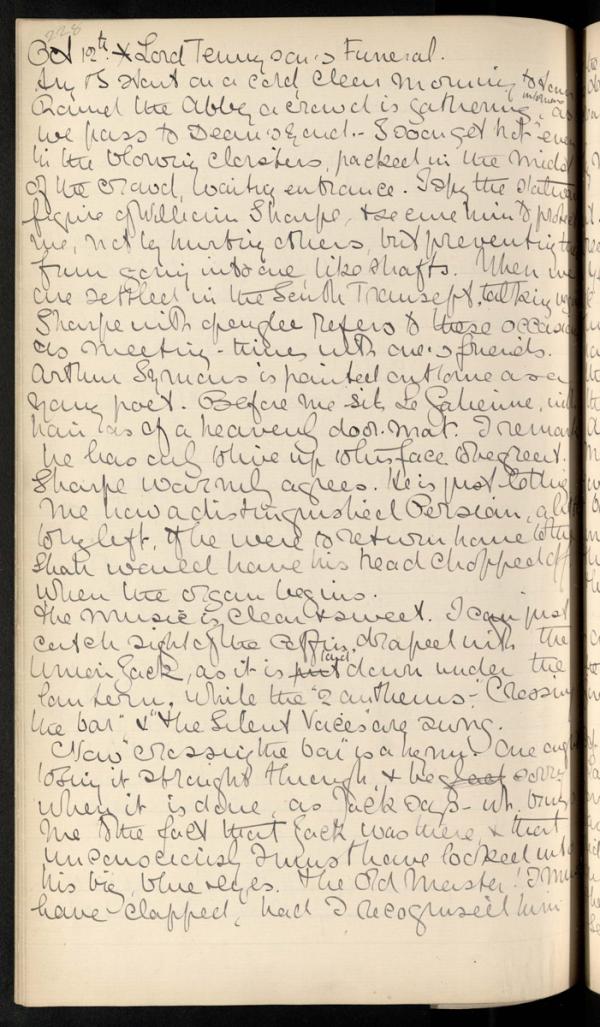 228
Oct 12th. X Lord Tennyson's Funeral.
Sim & I start on a cold clear morning
Round the Abbey a crowd is gathering, as
we pass to Dean's Yard. - Soon get hot even
in the blowing cloisters, packed in the midst
of the crowd, waiting entrance. I spy the
figure of William Sharpe, & see me him to protect
me, not by hurting others, but preventing the
from going into one, like shafts. When we
are settled in the South Transept, talking
Sharpe with openglee refers to these occasions
as meeting-times with one's friends.
Arthur Symons is pointed out to me as a
young poet. Before me sits Le Galienne, with
hair as of a heavenly door-mat. I remark
he has only to live up to his face to be great.
Sharpe warmly agrees. He is just telling
me how a distinguished Persian, a little
to my left, if he were to return home to the
Shah would have his head chopped off
when the organ begins.
The music is clear & sweet. I can just
catch sight of the coffin, draped with the
Union Jack, as it is put laid down under the
lantern, while the "2 anthems - "Crossing
the bar" & "The Silent Voices" are sung.
Now "crossing the bar" is a hymn - One ought
to sing it straight through, & be glad sorry
when it is done, as Jack says - wh. brings
me to the fact that Jack was there, & that
unconsciously I must have looked into
his big, blue eyes. The Old Master! I must
have clapped, had I recognised him